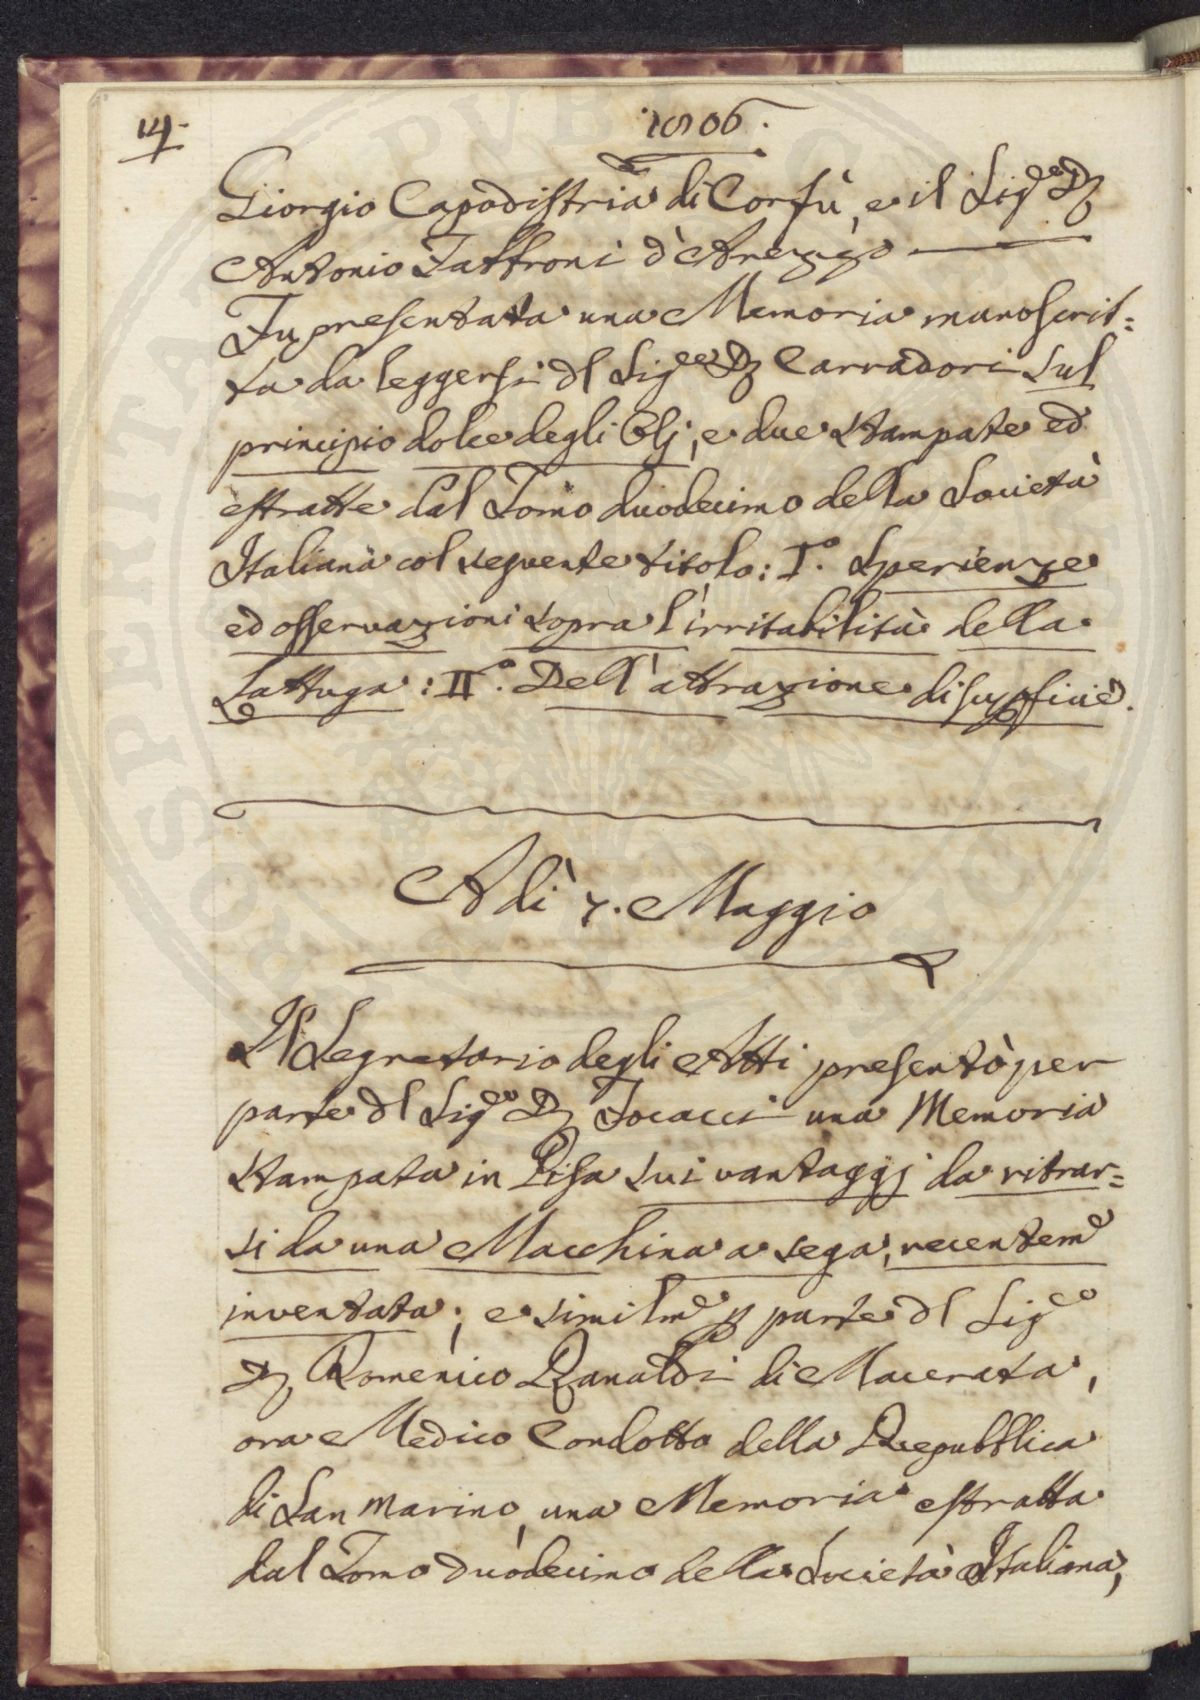 14.
1806.
Giorgio Capodistria di Corfù, e il Sig.e D.
Antonio Fabbroni d'Arezzo
Fu presentata una Memoria manoscrit=
ta da leggersi dl Sig.e D. Carradori sul
principio dolce degli Olj, e due stampate ed
estratte dal Tomo duodecimo della Società
Italiana col seguente titolo: I.° Sperienze
ed osservazioni sopra l'irritabilità della
Lattuga: II.° Dell'attrazione di supficie.
A dì 7. Maggio
Il Segretario degli Atti presentò per
parte dl Sig.e D. Focacci una Memoria
stampata in Pisa sui vantaggj da ritrar=
si da una Macchina a sega, recentem.e
inventata; e similm.e p parte dl Sig.e
D. Domenico Ranaldi di Macerata,
ora Medico Condotto della Repubblica
di San Marino, una Memoria estratta
dal Tomo duodecimo della Società Italiana,